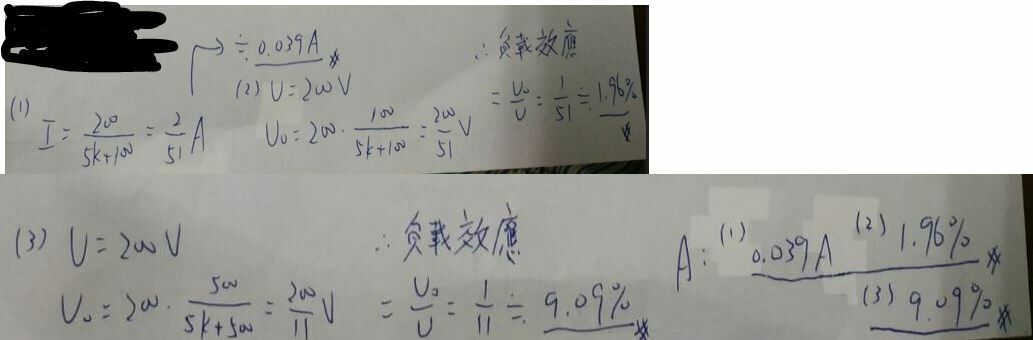 (1) I = 200/(5k+100) = 2/51 A
≒ 0.039A
(2) U = 200V
U₀ = 200 · 100/(5k+100) = 200/51 V
∴ 負載效應
= U₀/U = 1/51 ≒ 1.96%
(3) U = 200V
U₀ = 200 · 500/(5k+500) = 200/11 V
∴ 負載效應
= U₀/U = 1/11 ≒ 9.09%
A: (1) 0.039A (2) 1.96%
(3) 9.09%